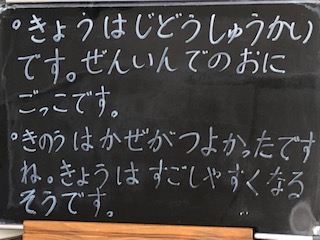 。きょうはじどうしゅうかい
です。ぜんいんでのおに
ごっこです。
。きのうはかぜがつよかったです
ね。きょうはすごしやすくなる
そうです。